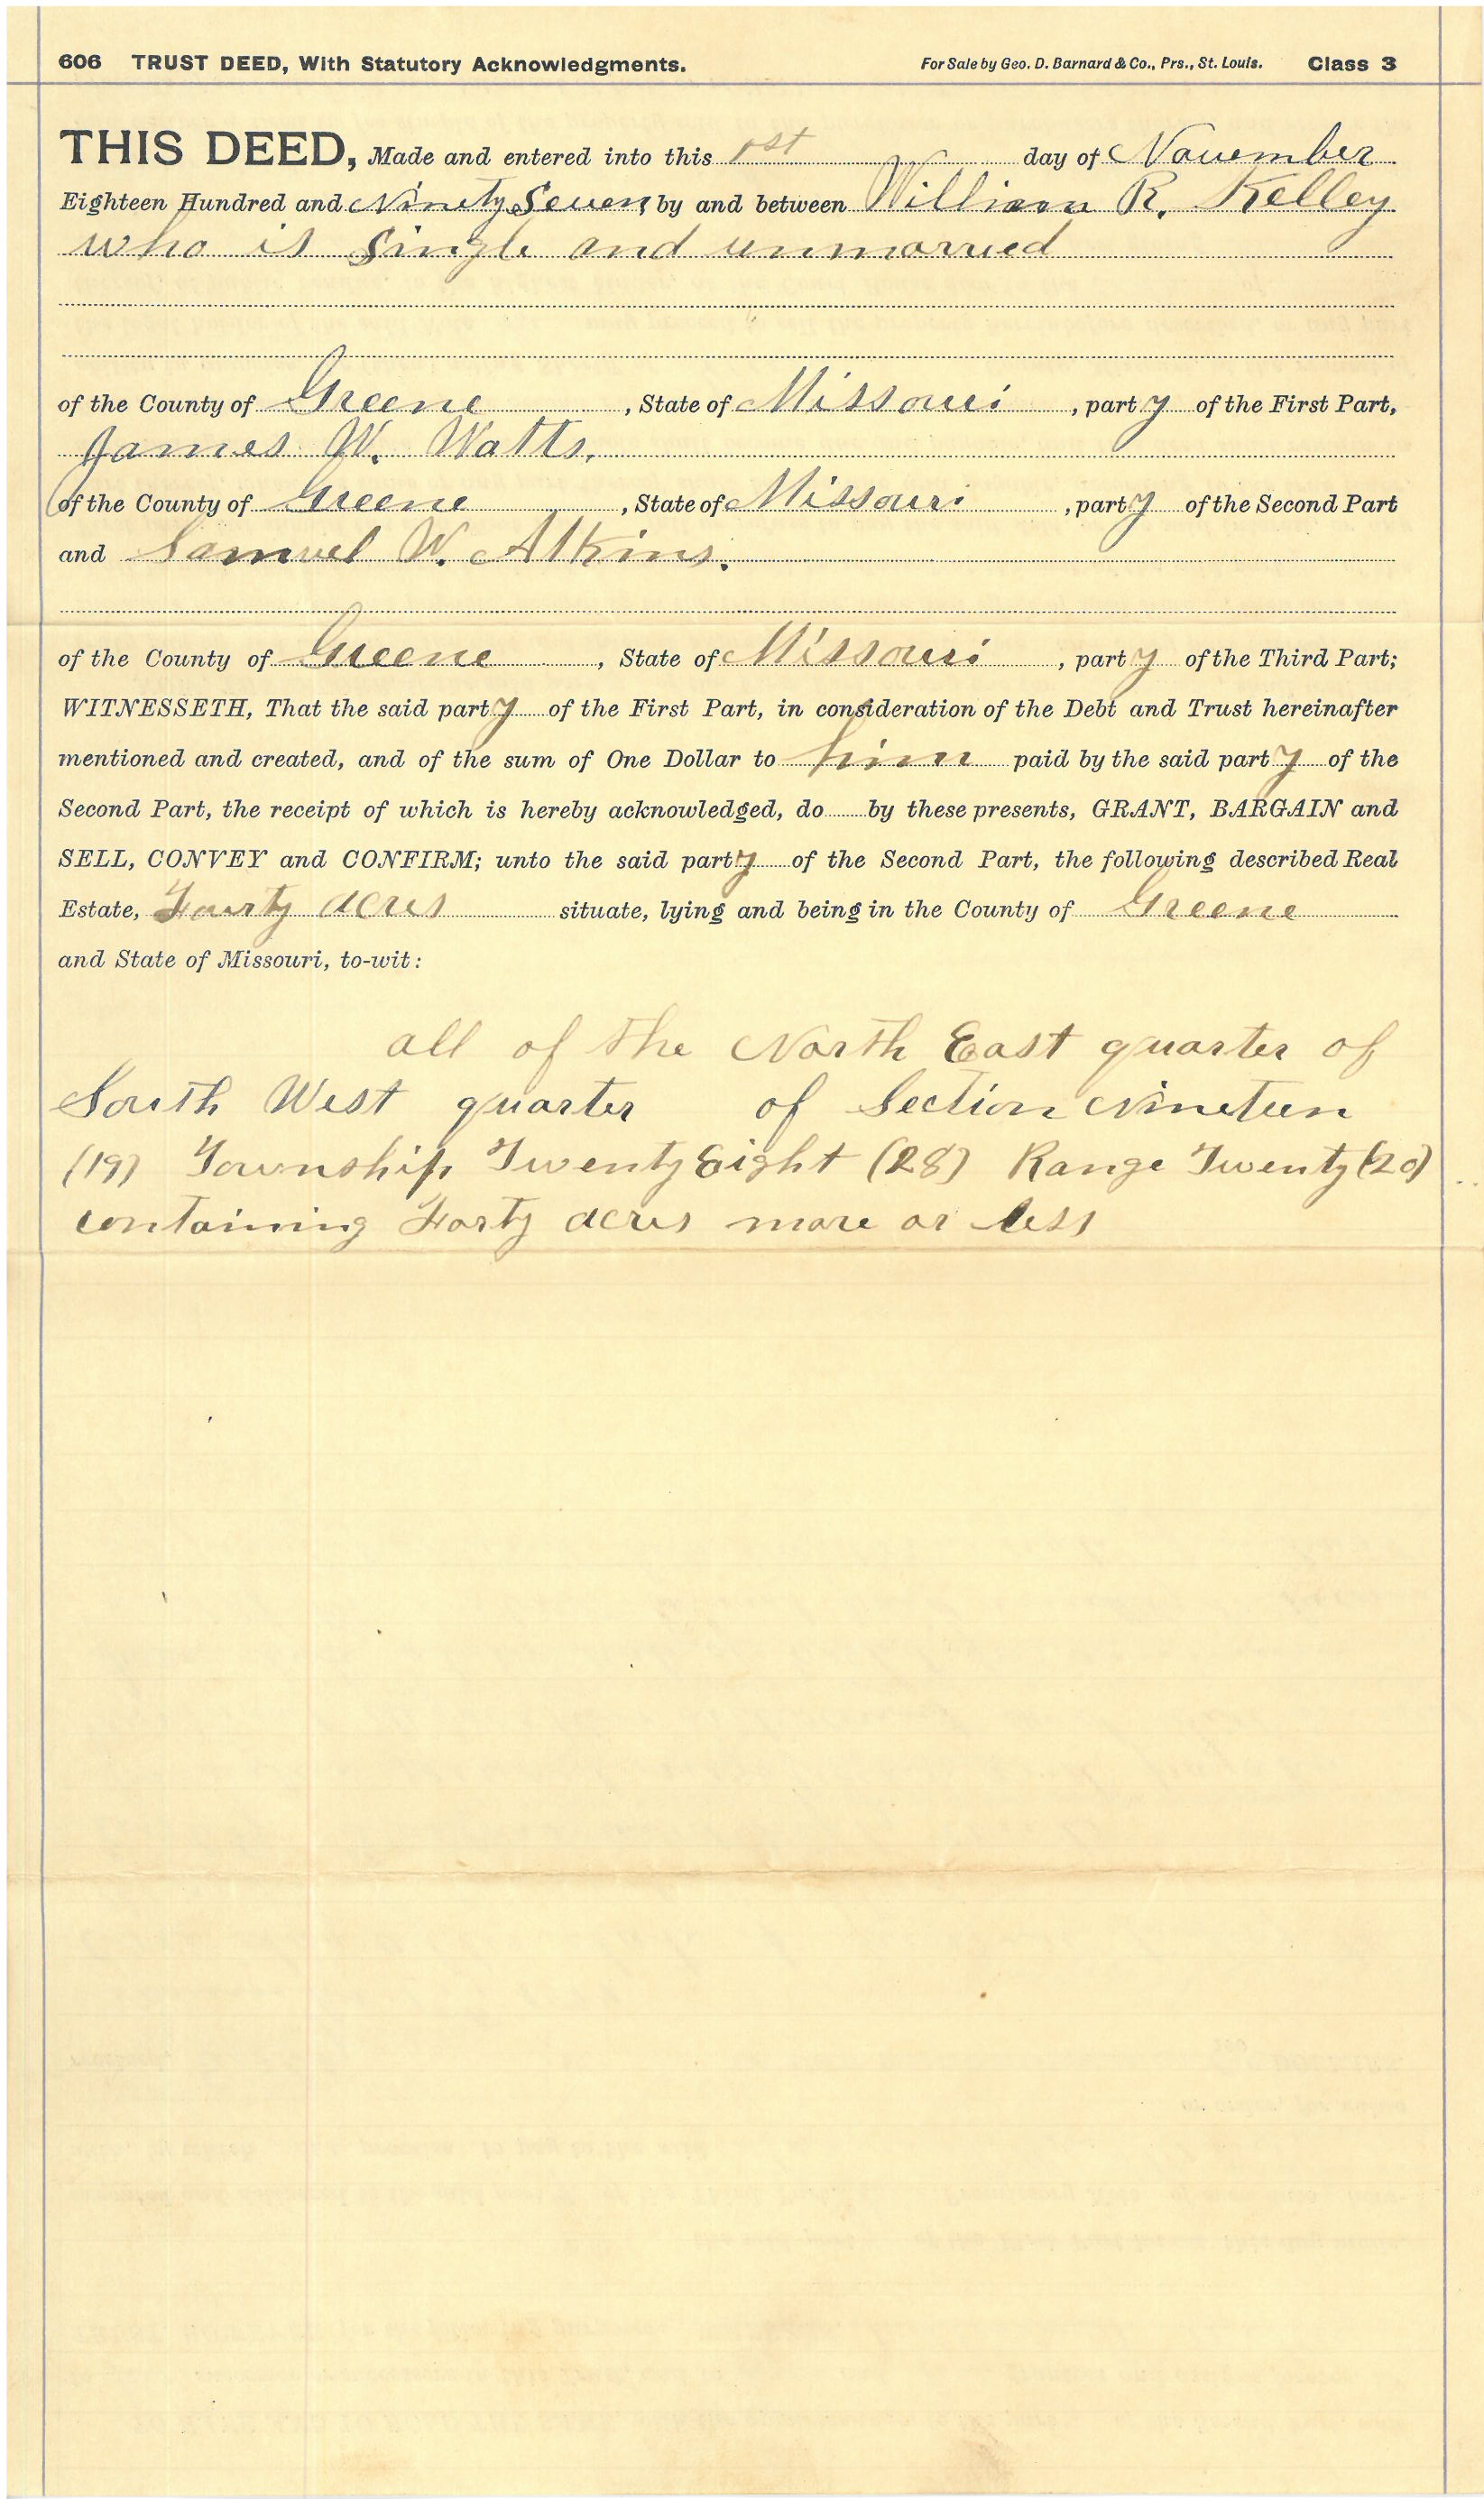 606 TRUST DEED, With Statutory Acknowledgments. For Sale by Geo. D. Barnard & Co., Prs., St. Louis. Class 3
THIS DEED, Made and entered into this 1st day of November
Eighteen Hundred and Ninety Seven, by and between William R. Kelley
who is single and unmarried
of the County of Greene, State of Missouri, party of the First Part,
James W. Watts.
of the County of Greene, State of Missouri, party of the Second Part
and Samuel W. Atkins.
of the County of Greene, State of Missouri, party of the Third Part;
WITNESSETH, That the said party of the First Part, in consideration of the Debt and Trust hereinafter
mentioned and created, and of the sum of One Dollar to him paid by the said party of the
Second Part, the receipt of which is hereby acknowledged, do by these presents, GRANT, BARGAIN and
SELL, CONVEY and CONFIRM; unto the said party of the Second Part, the following described Real
Estate, Fourty acres situate, lying and being in the County of Greene
and State of Missouri, to-wit:
all of the North East quarter of
South West quarter of Section Nineteen
(19) Township Twenty Eight (28) Range Twenty (20)
containing Forty acres more or less